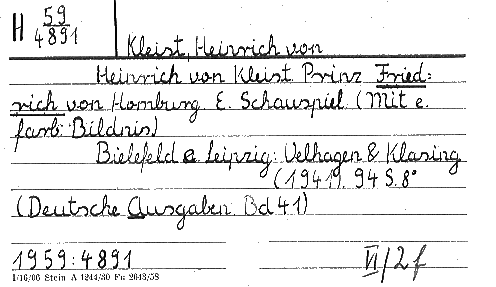 H 59
4891
Kleist, Heinrich von
Heinrich von Kleist Prinz Fried=
rich von Homburg. E. Schauspiel. (Mit e.
farb. Bildnis)
Bielefeld & Leipzig: Velhagen & Klasing
(1941). 94 S. 8°
(Deutsche Ausgaben. Bd 41)
1959:4891
VI/2f
1/16/06 Stein A 1244/30 Fu 2643/58